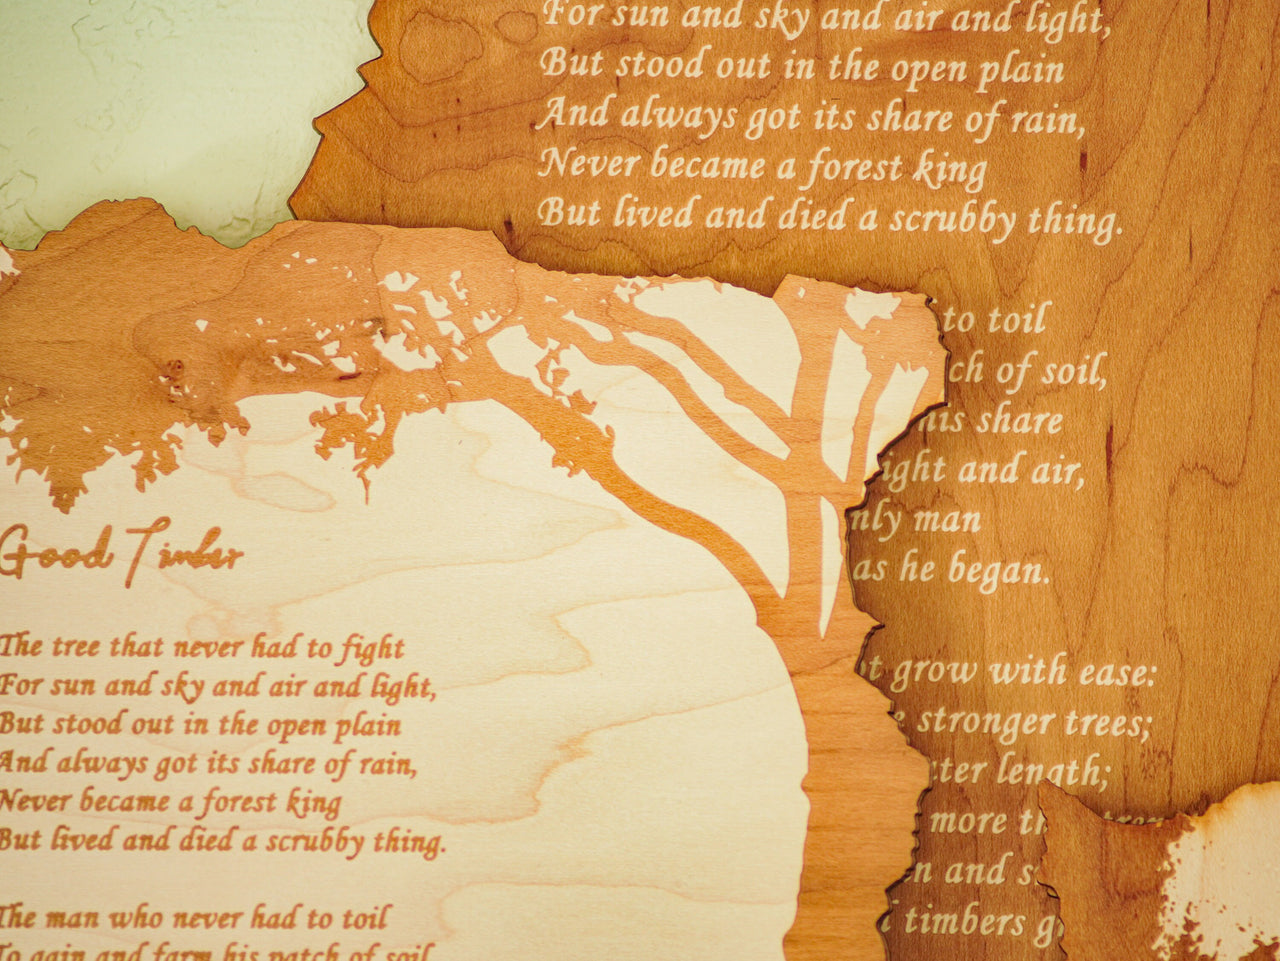 For sun and sky and air and light,
But stood out in the open plain
And always got its share of rain,
Never became a forest king
But lived and died a scrubby thing.
to toil
of soil,
his share
and air,
man
as he began.
grow with ease:
stronger trees;
length;
more
and
timbers
Good Timber
The tree that never had to fight
For sun and sky and air and light,
But stood out in the open plain
And always got its share of rain,
Never became a forest king
But lived and died a scrubby thing.
The man who never had to toil
To gain and farm his patch of soil